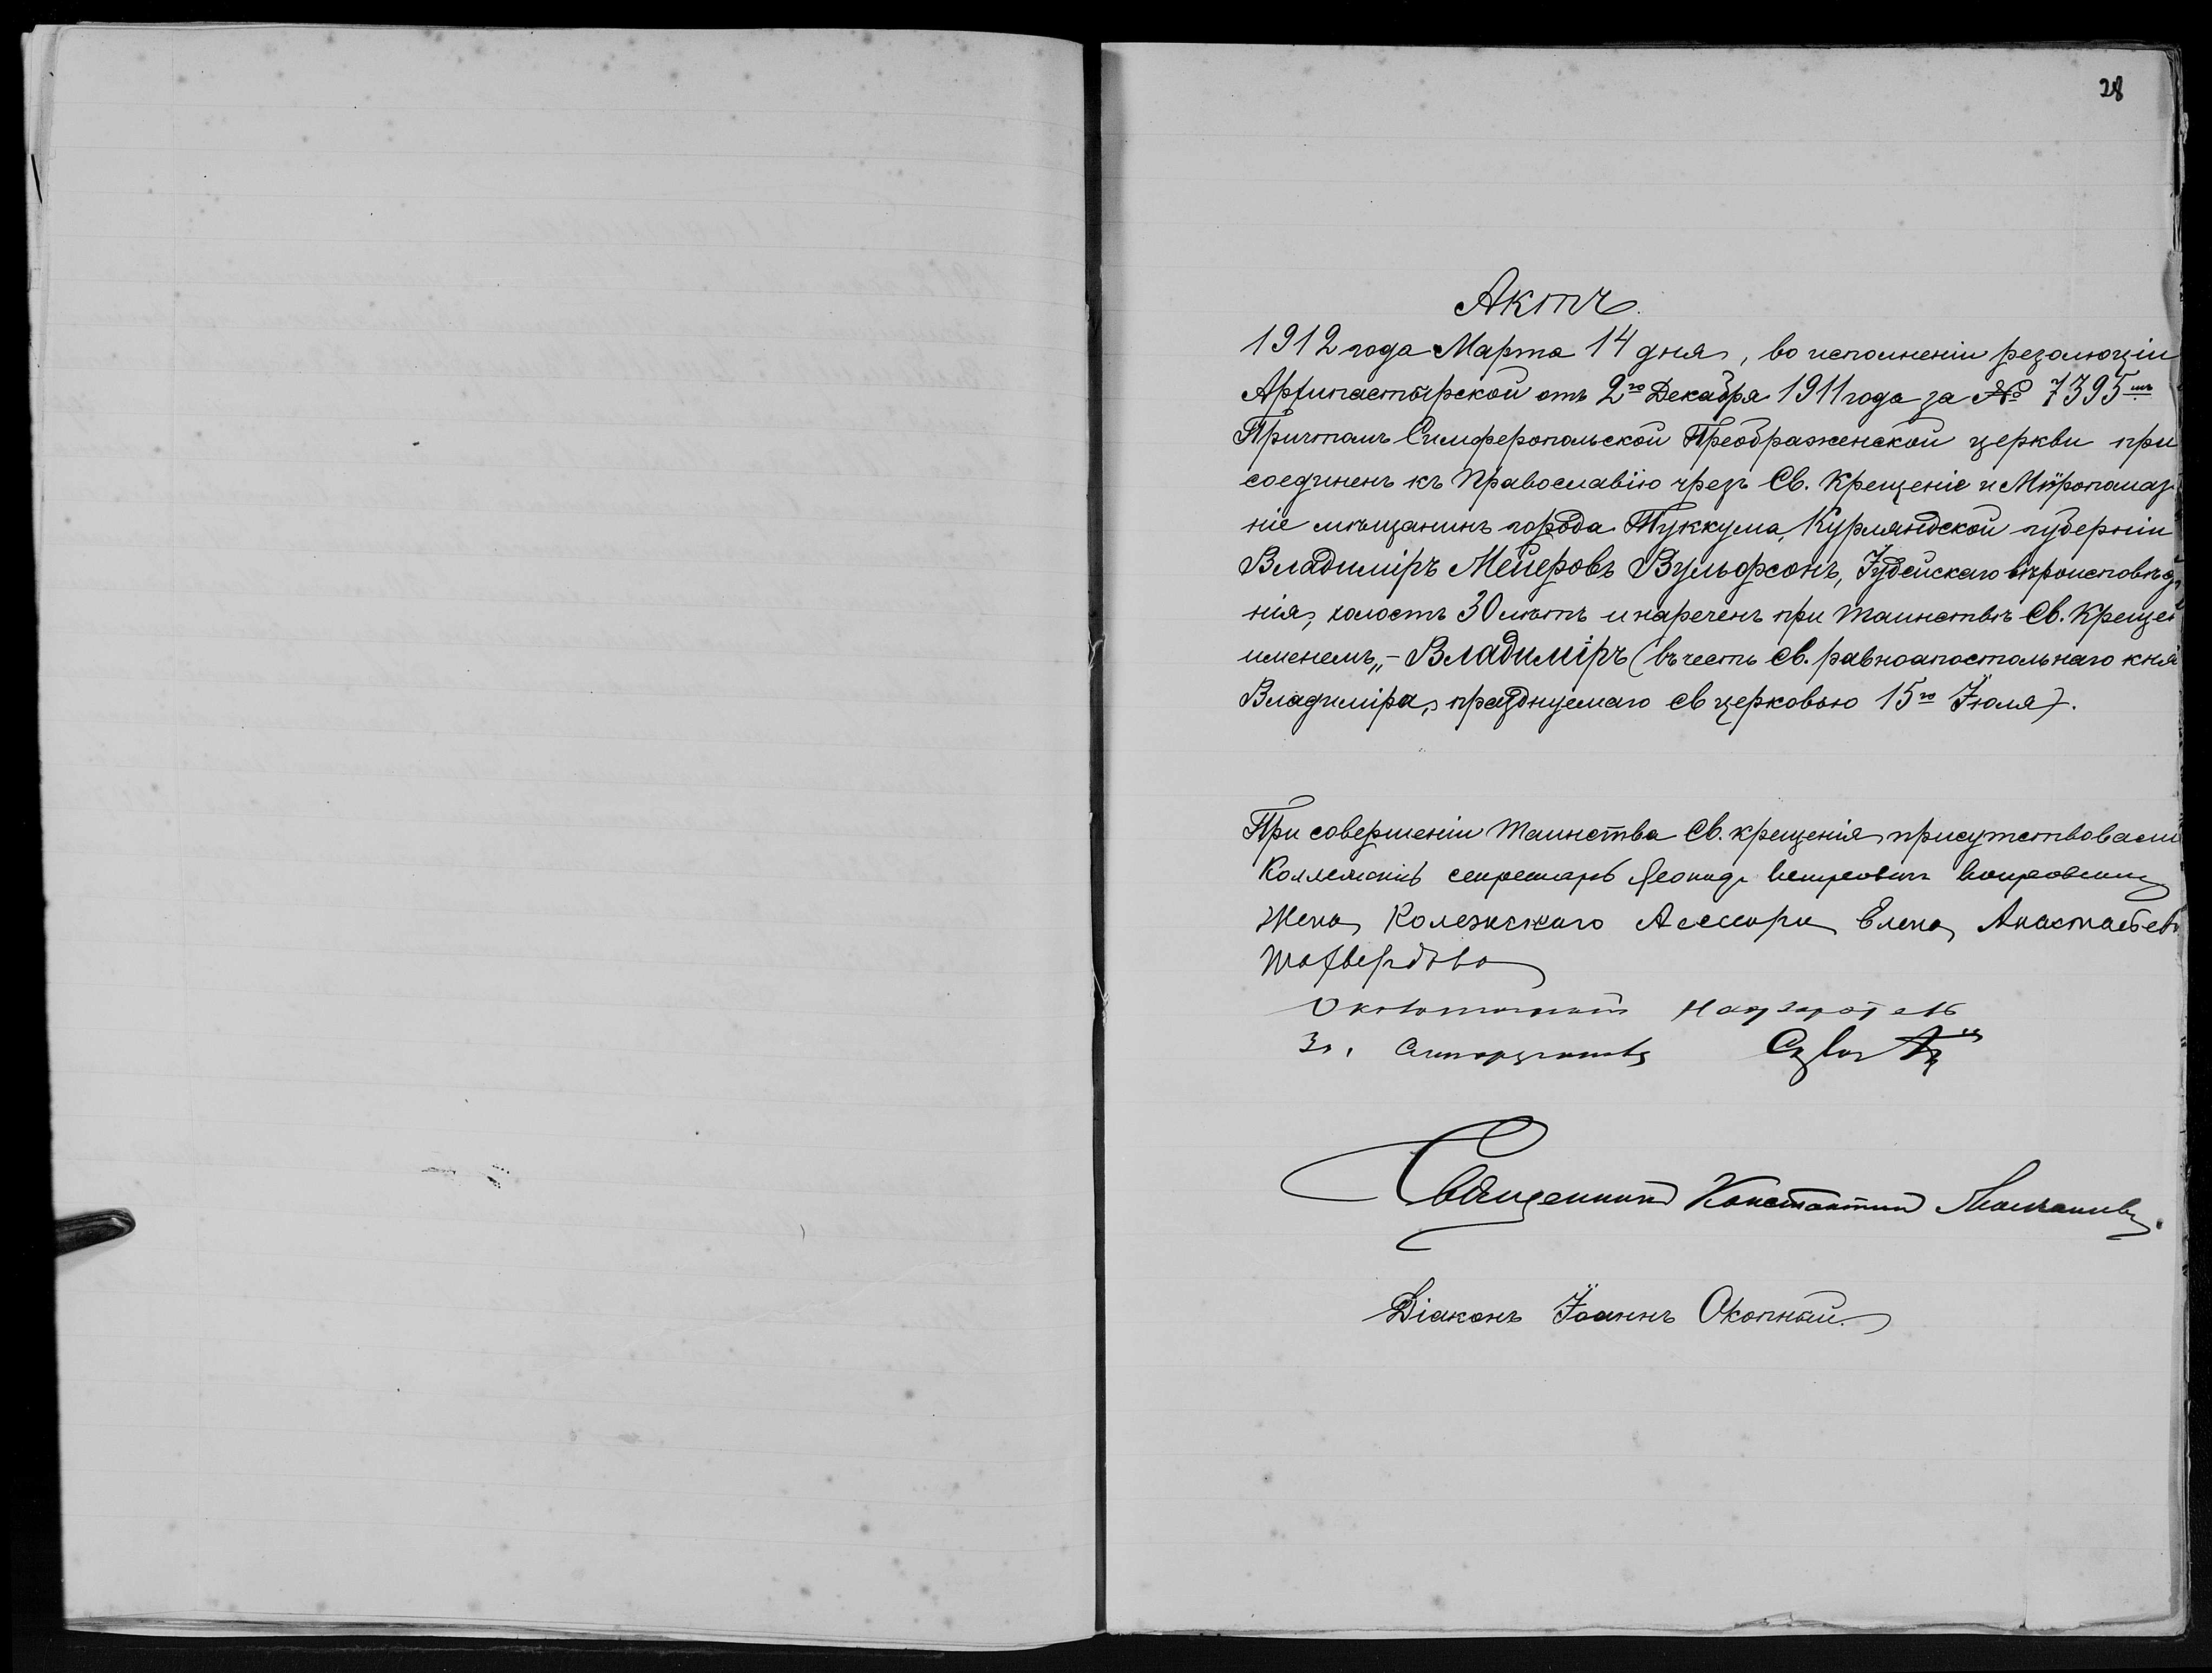 28
Актъ.
1912 года Марта 14 дня, во исполненiи резолюцiи
Архипастырской отъ 2го Декабря 1911 года за № 7395мъ
Причтомъ Симферопольской Преображенской церкви при
соединенъ къ Православiю чрезъ Св. Крещенiе и Мѵропомаз
нiе мѣщанинъ города Туккума, Курляндской губернiи
Владимiръ Мейеровъ Вульфсонъ, Iудейскаго вѣроисповѣд
нiя, холостъ 30 лѣтъ и нареченъ при таинствѣ Св. Крещен
именемъ „– Владимiръ (въ честь Св. равноапостольнаго кня
Владимiра, празднуемаго Св церковью 15го Iюля).
При совершенiи таинства Св. крещенiя присутствовали
секретарь Леонидъ
Жена Колежскаго Асесора Елена
Околоточный Надзиратель
Священникъ Константинъ
Дiаконъ Iоаннъ Окопный.